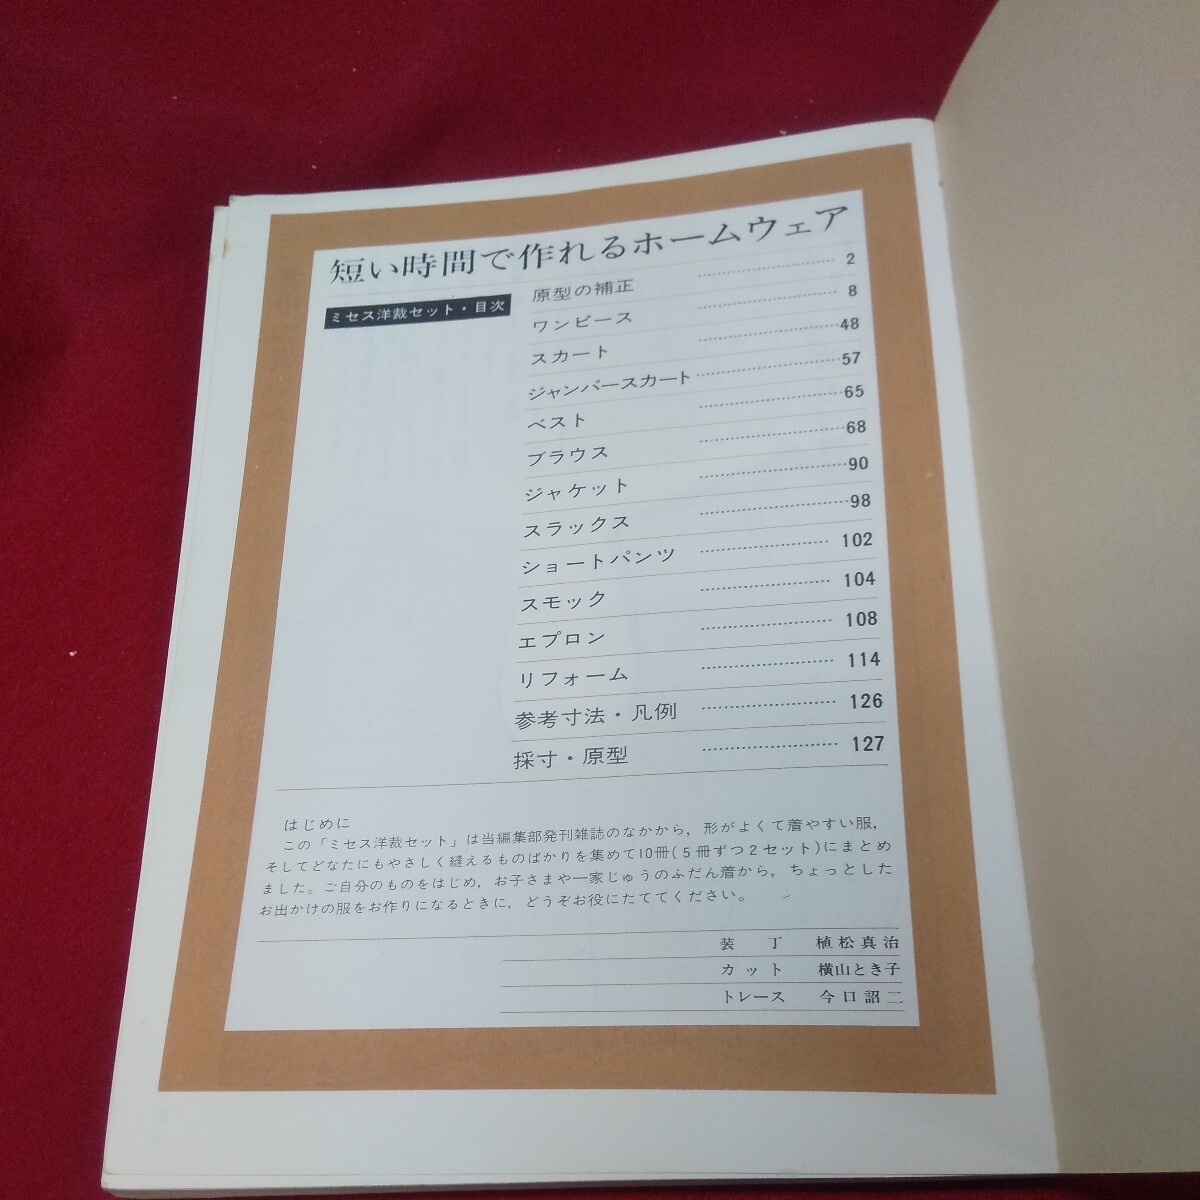 短い時間で作れるホームウェア
ミセス洋裁セット・目次
原型の補正 2
ワンピース 8
スカート 48
ジャンパースカート 57
ベスト 65
ブラウス 68
ジャケット 90
スラックス 98
ショートパンツ 102
スモック 104
エプロン 108
リフォーム 114
参考寸法・凡例 126
採寸・原型 127
はじめに
この「ミセス洋裁セット」は当編集部発刊雑誌のなかから，形がよくて着やすい服，
そしてどなたにもやさしく縫えるものばかりを集めて10冊(５冊ずつ２セット)にまとめ
ました。ご自分のものをはじめ，お子さまや一家じゅうのふだん着から，ちょっとした
お出かけの服をお作りになるときに，どうぞお役にたててください。
装丁 植松真治
カット 横山とき子
トレース 今口詔二